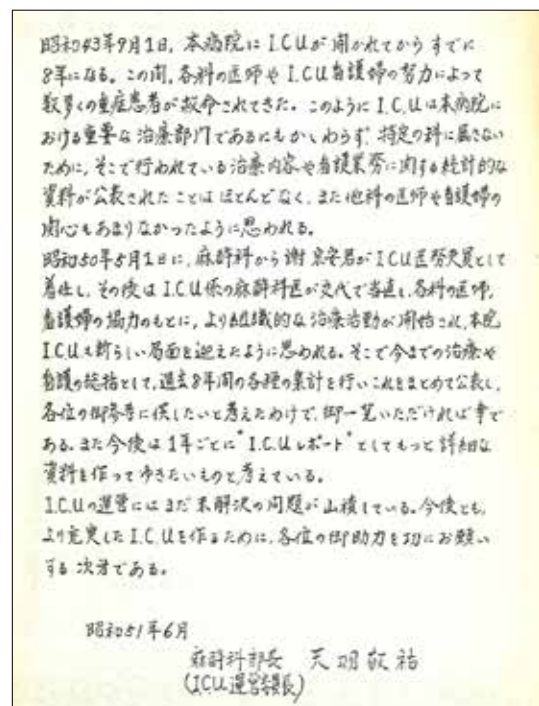 昭和43年9月1日、本病院にI.C.Uが開かれてからすでに
8年になる。この間、各科の医師やI.C.U看護婦の努力によって
数多くの重症患者が救命されてきた。このようにI.C.Uは本病院に
おける重要な治療部門であるにもかゝわらず、特定の科に属さない
ために、そこで行われている治療内容や看護業務に関する統計的な
資料が公表されたことはほとんどなく、また他科の医師や看護婦の
関心もあまりなかったように思われる。
昭和50年5月1日に、麻酔科から謝宗安君がICU医務失員として
着任し、その後はI.C.U係の麻酔科医が交代で当直し、各科の医師、
看護婦の協力のもとに、より組織的な治療活動が開始され、本院
I.C.Uも新らしい局面を迎えたように思われる。そこで今までの治療や
看護の総括として、過去8年間の各種の集計を行いこれをまとめて公表し、
各位の御参考に供したいと考えたわけで、御一覧いただければ幸で
ある。また今後は1年ごとに"I.C.Uレポート"としてもっと詳細な
資料を作ってゆきたいものと考えている。
I.C.Uの運営にはまだ未解決の問題が山積している。今後とも、
より充実したI.C.Uを作るために、各位の御助力を切にお願い
する次才である。
昭和51年6月
麻酔科部長 天明敬祐
(ICU運営委員長)